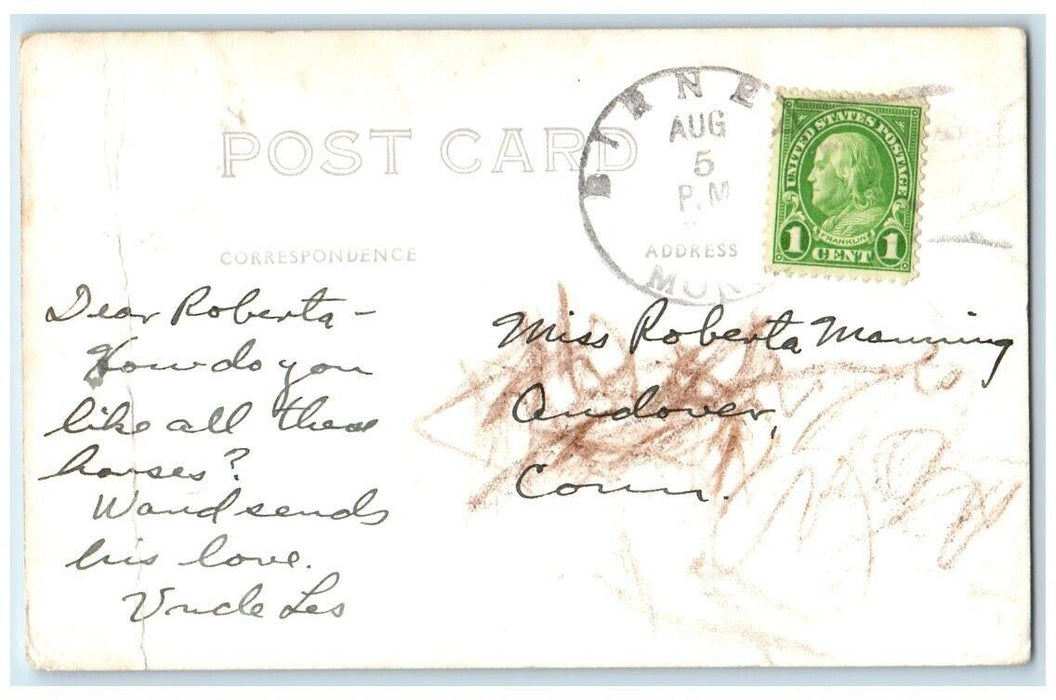 POST CARD
BIRNEY
AUG
5
P.M
MONT
UNITED STATES POSTAGE
FRANKLIN
1 CENT 1
CORRESPONDENCE
ADDRESS
Dear Roberta -
How do you
like all these
horses?
Ward sends
his love.
Uncle Les
Miss Roberta Manning
Andover,
Conn.